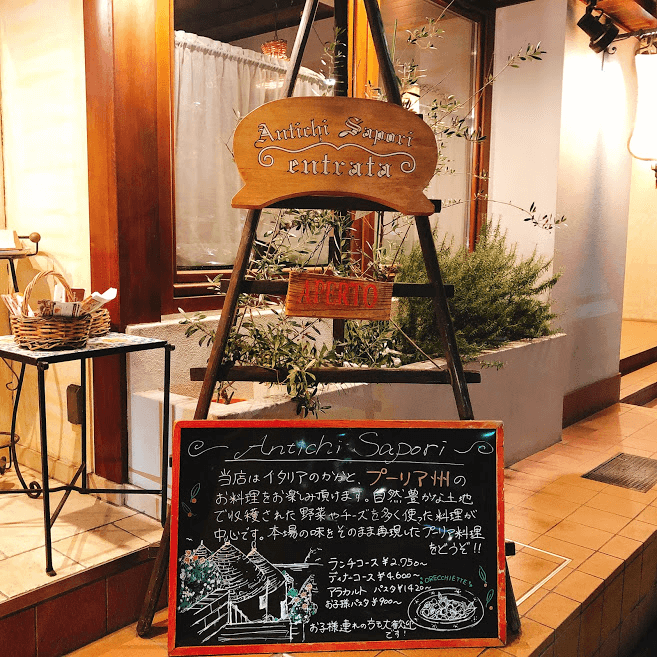 Antichi Sapori
entrata
APERTO
Antichi Sapori
当店はイタリアのかかと、プーリア州の
お料理をお楽しみ頂けます。自然豊かな土地
で収穫された野菜やチーズを多く使った料理が
中心です。本場の味をそのまま再現したプーリア料理
をどうぞ!!
ランチコース ¥2.750〜
ディナーコース ¥4,600〜
アラカルト パスタ ¥1420〜
お子様パスタ ¥900〜
ORECCHIETTE
お子様連れの方も大歓迎
です!